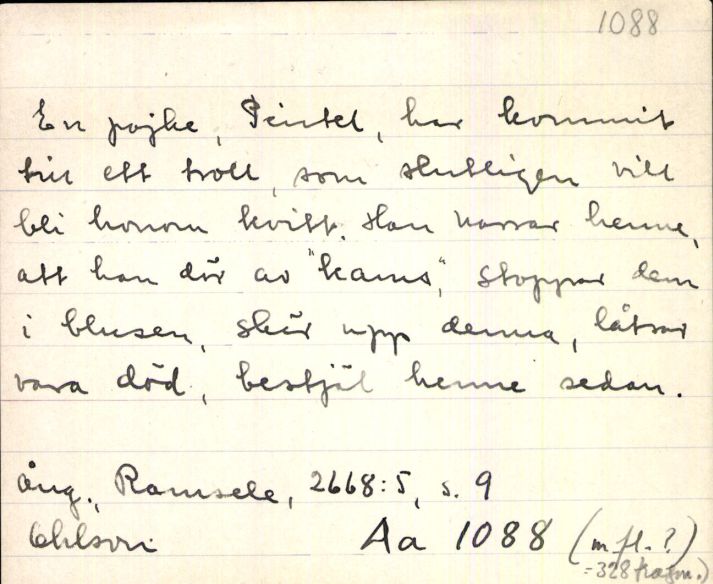 1088
En pojke, Peintel, har kommit
till ett troll, som slutligen vill
bli honom kvitt. Han narrar henne,
att han dör av "kams", stoppar dem
i blusen, skär upp denna, låtsar
vara död, bestjäl henne sedan.
Ång., Ramsele, 2668:5, s. 9
Ohlson Aa 1088 (m. fl.?)
=328 fragm.)